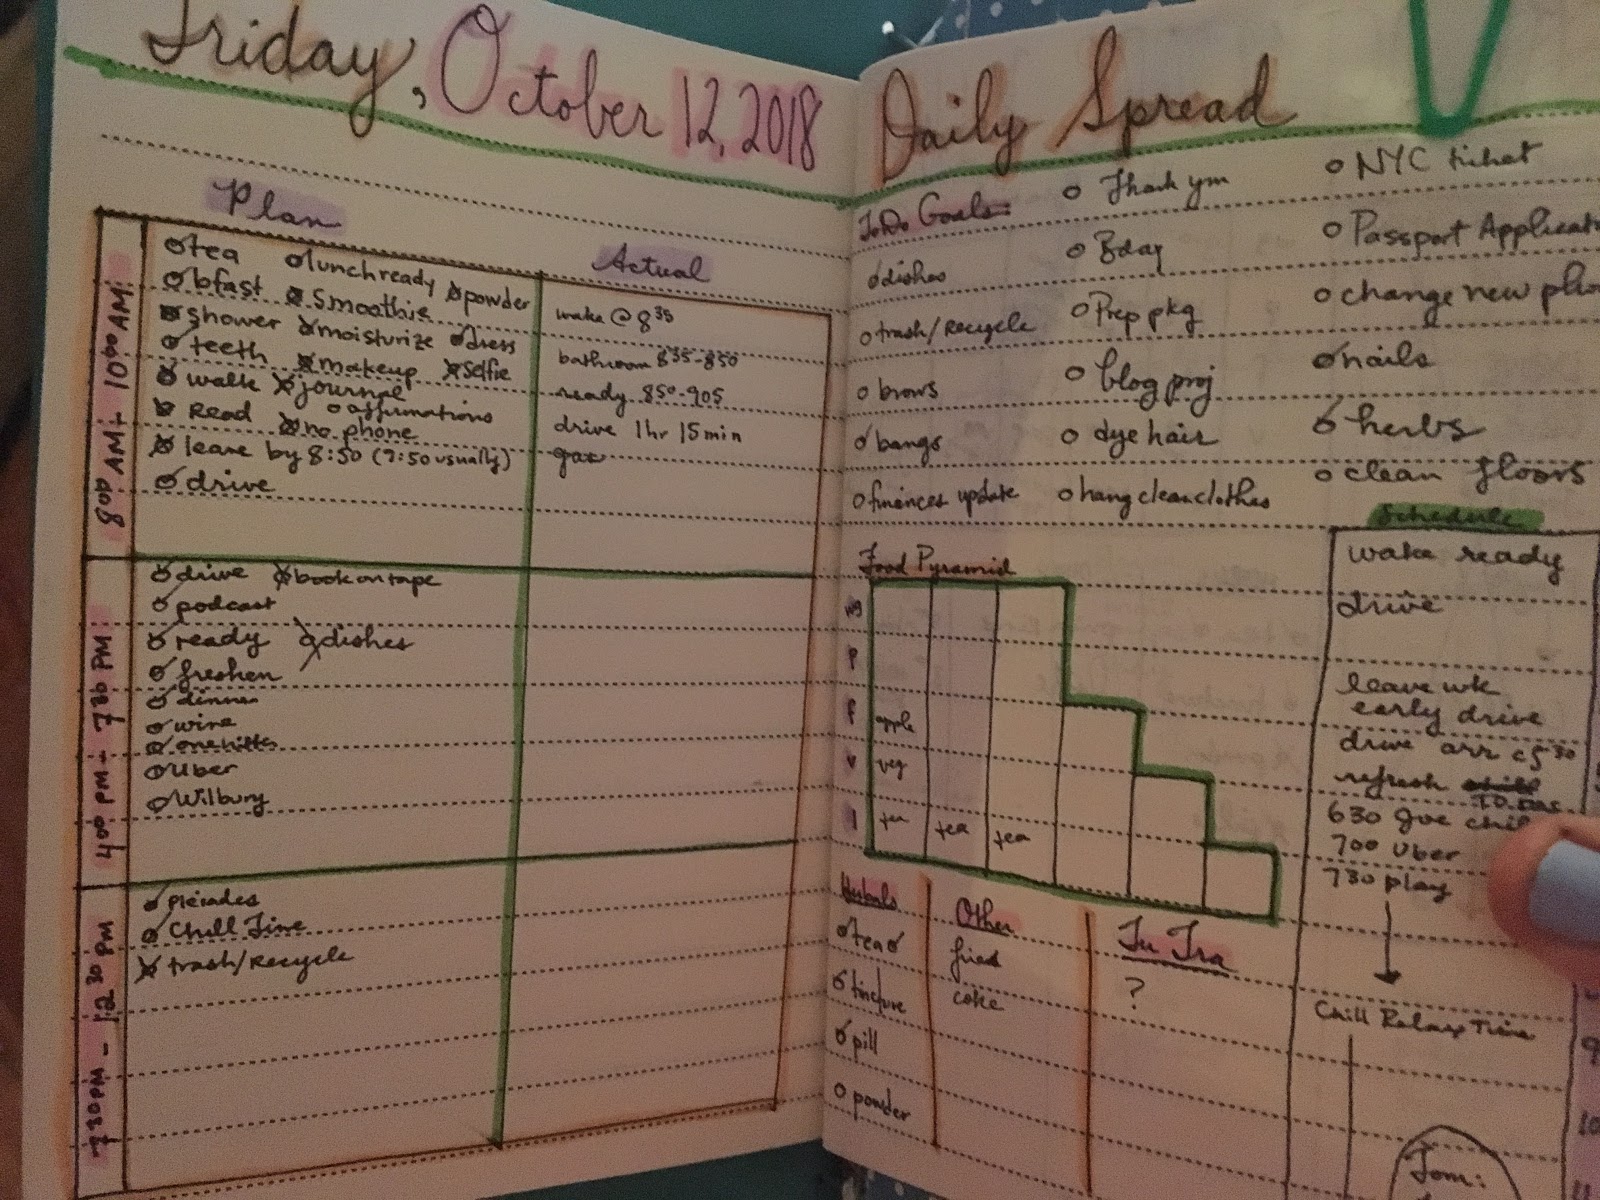 Friday, October 12, 2018
Plan
Actual
8:00 AM - 10:00 AM
tea lunch ready powder
bfast smoothie
shower moisturize dress
teeth makeup selfie
walk journal
Read affirmations
no phone
leave by 8:50 (7:50 usually)
drive
wake @ 8:35
bathroom 8:35-8:50
ready 8:50-9:05
drive 1hr 15min
gas
4:00 PM - 7:30 PM
drive book on tape
podcast
ready dishes
freshen
dinner
wine
Uber
Wilbury
7:30 PM - 12:30 PM
Pleiades
Chill Time
trash/recycle
Daily Spread
ToDo Goals:
dishes
trash/recycle
brows
bangs
finances update
Thank ym
Bday
Prep pkg
blog proj
dye hair
hang clean clothes
NYC ticket
Passport Applicat
change new pho
nails
herbs
clean floors
Food Pyramid
wg
P
f apple
v veg
l tea tea tea
Herbals
tea
tincture
pill
powder
Other
fried
coke
Tu Tra
?
Schedule
wake ready
drive
leave wk
early drive
drive arr c 5:30
refresh
630 Joe chil
700 Uber
730 play
Chill Relax Time
Tom: